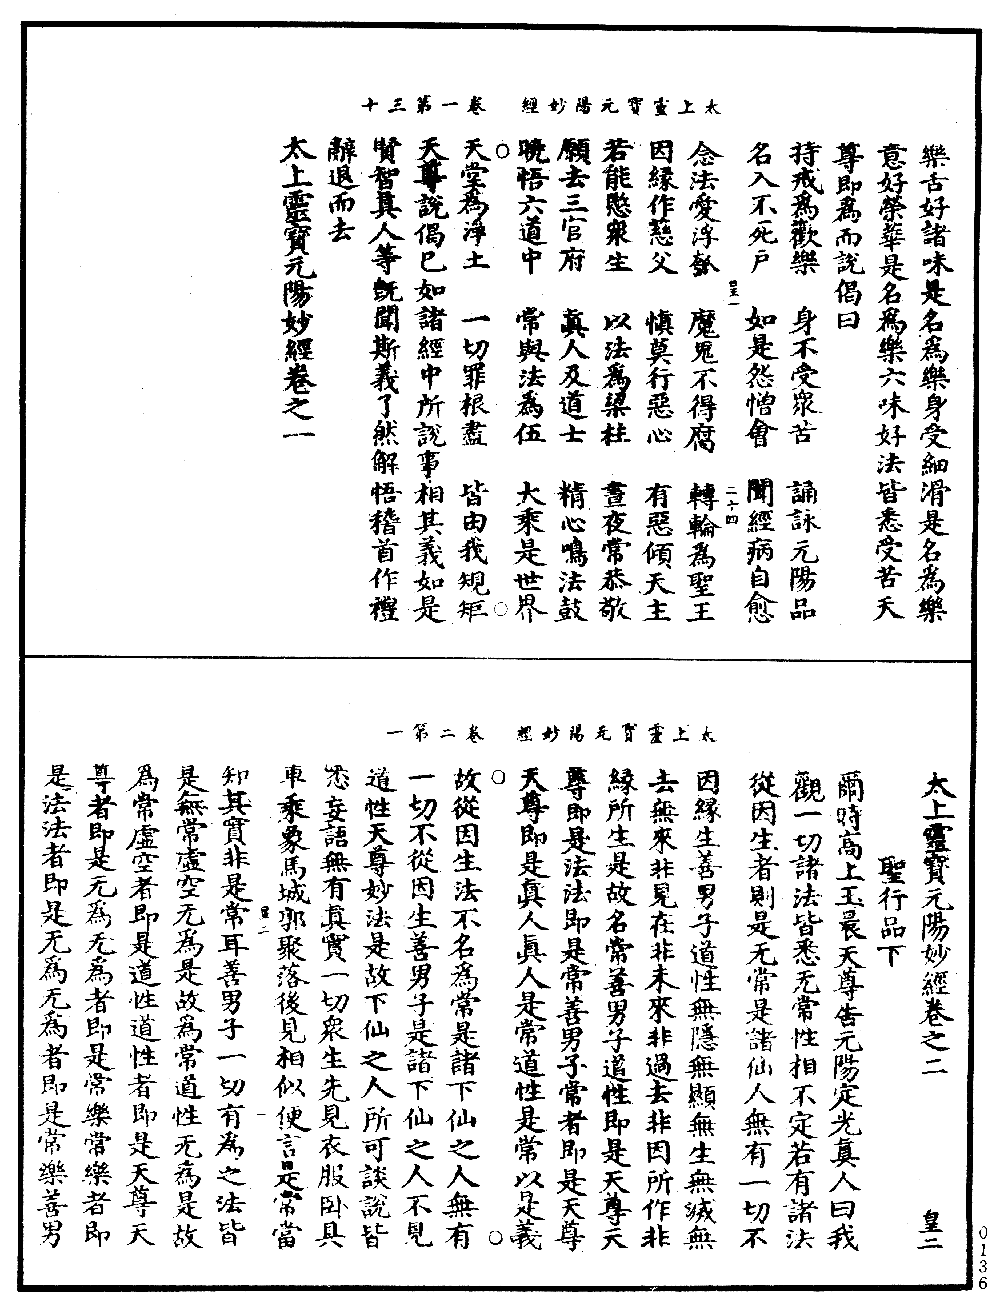 太上靈寶元陽妙經　卷一第三十
樂舌好諸味是名為樂身受細滑是名為樂
意好榮華是名為樂六味好法皆悉受苦天
尊即為而說偈曰
持戒為歡樂　身不受眾苦　誦詠元陽品
名入不死戶　如是怨憎會　聞經病自愈
皇一　二十四
念法愛浮榖　魔鬼不得腐　轉輪為聖王
因緣作慈父　慎莫行惡心　有惡傾天主
若能愍眾生　以法為梁柱　晝夜常恭敬
願去三官府　真人及道士　精心鳴法鼓
曉悟六道中　常與法為伍　大乘是世界
天堂為淨土　一切罪根盡　皆由我規矩
天尊說偈已如諸經中所說事相其義如是
賢智真人等既聞斯義了然解悟稽首作禮
辭退而去
太上靈寶元陽妙經卷之一
太上靈寶元陽妙經　卷二第一
太上靈寶元陽妙經卷之二　皇二
聖行品下
爾時高上玉晨天尊告元陽定光真人曰我
觀一切諸法皆悉无常性相不定若有諸法
從因生者則是无常是諸仙人無有一切不
因緣生善男子道性無隱無顯無生無滅無
去無來非見在非未來非過去非因所作非
緣所生是故名常善男子道性即是天尊天
尊即是法法即是常善男子常者即是天尊
天尊即是真人真人是常道性是常以是義
故從因生法不名為常是諸下仙之人無有
一切不從因生善男子是諸下仙之人不見
道性天尊妙法是故下仙之人所可談說皆
悉妄語無有真實一切眾生先見衣服臥具
車乘象馬城郭聚落後見相似便言是常當
皇二　一
知其實非是常耳善男子一切有為之法皆
是無常虛空无為是故為常道性无為是故
為常虛空者即是道性道性者即是天尊天
尊者即是无為无為者即是常樂常樂者即
是法法者即是无為无為者即是常樂善男
0136